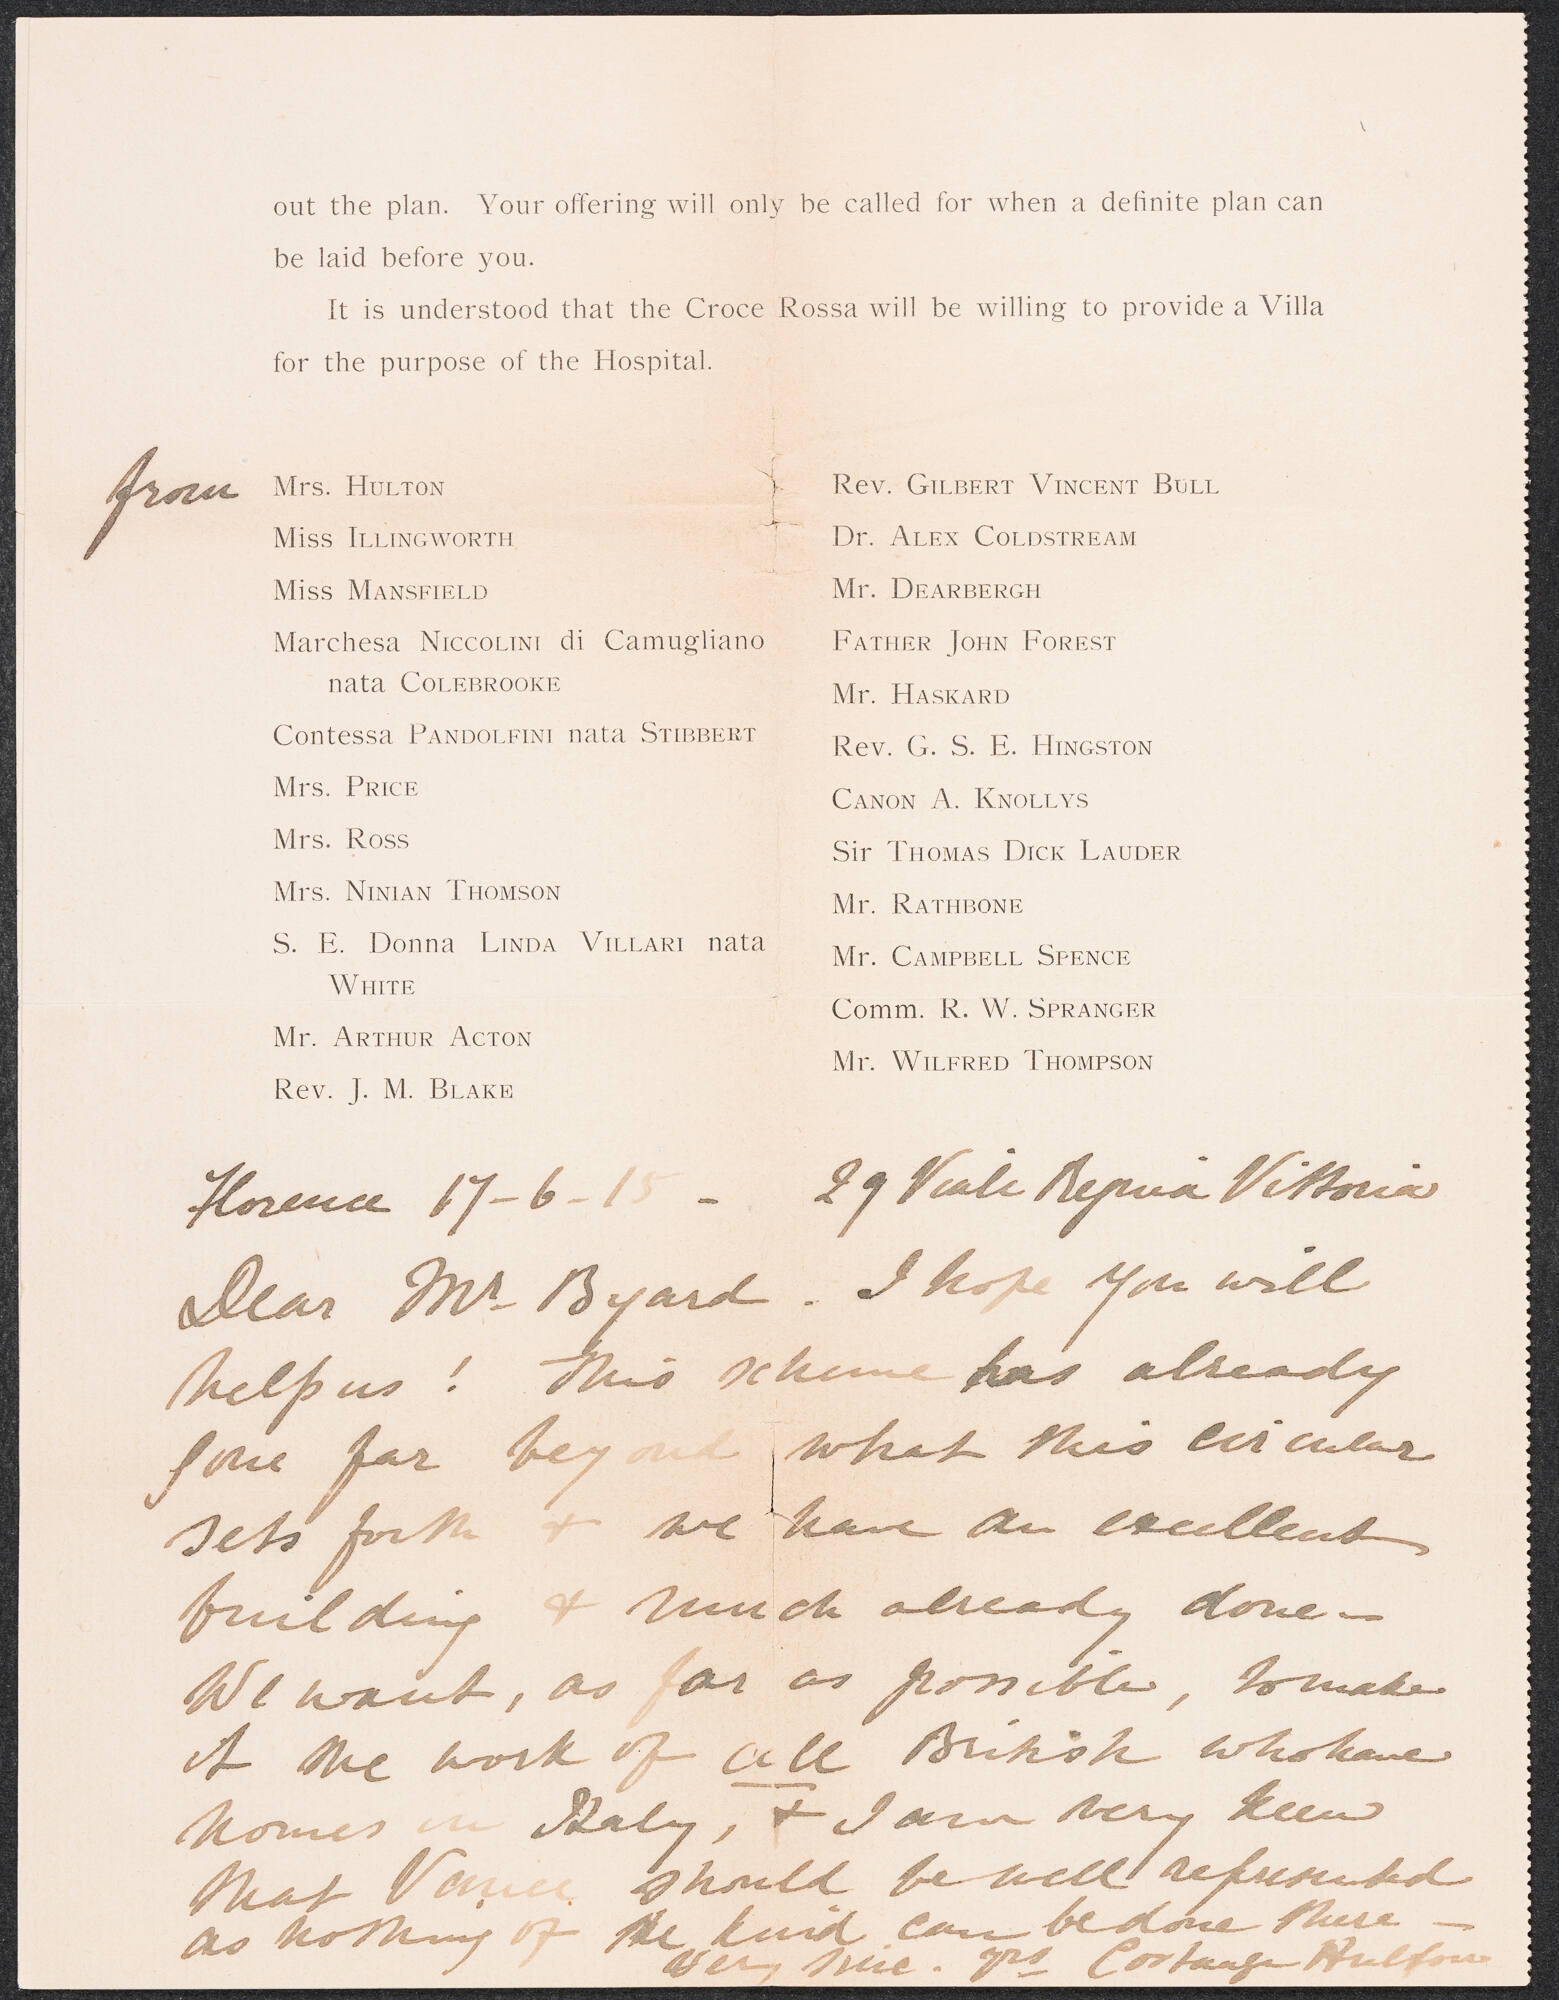 out the plan. Your offering will only be called for when a definite plan can
be laid before you.
It is understood that the Croce Rossa will be willing to provide a Villa
for the purpose of the Hospital.
from
Mrs. HULTON
Miss ILLINGWORTH
Miss MANSFIELD
Marchesa NICCOLINI di Camugliano
nata COLEBROOKE
Contessa PANDOLFINI nata STIBBERT
Mrs. PRICE
Mrs. ROSS
Mrs. NINIAN THOMSON
S. E. Donna LINDA VILLARI nata
WHITE
Mr. ARTHUR ACTON
Rev. J. M. BLAKE
Rev. GILBERT VINCENT BULL
Dr. ALEX COLDSTREAM
Mr. DEARBERGH
FATHER JOHN FOREST
Mr. HASKARD
Rev. G. S. E. HINGSTON
CANON A. KNOLLYS
Sir THOMAS DICK LAUDER
Mr. RATHBONE
Mr. CAMPBELL SPENCE
Comm. R. W. SPRANGER
Mr. WILFRED THOMPSON
Florence 17-6-15 - 29 Viale Regina Vittoria
Dear Mr. Byard. I hope you will
help us! This scheme has already
gone far beyond what this circular
sets forth & we have an excellent
building & much already done -
We want, as far as possible, to make
it the work of all British who have
homes in Italy, & I am very keen
that Venice should be well represented
as nothing of the kind can be done there -
Very sinc. yrs Costanza Hulton